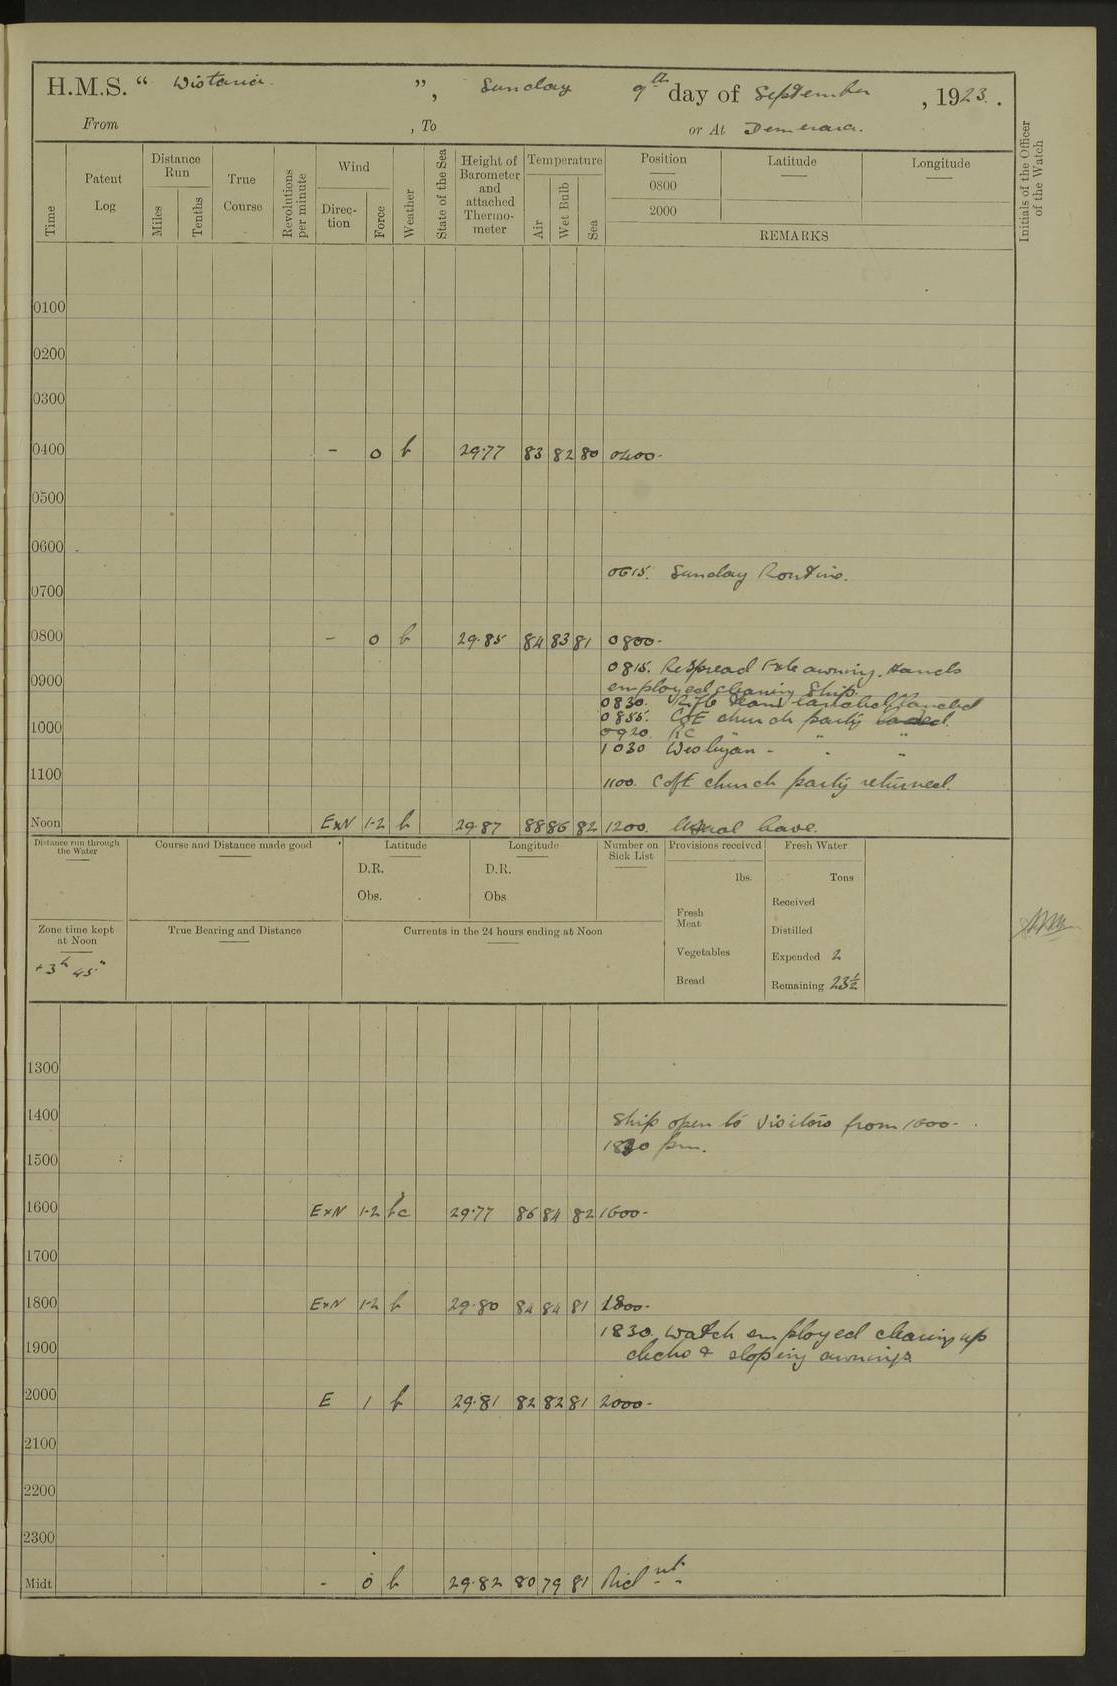 H.M.S. “ Wistaria ”, Sunday 9th day of September, 1923.
From , To or At Demerara.
Time
Patent Log
Distance Run
Miles
Tenths
True Course
Revolutions per minute
Wind
Direction
Force
Weather
State of the Sea
Height of Barometer and attached Thermometer
Temperature
Air
Wet Bulb
Sea
Position
Latitude
Longitude
0800
2000
REMARKS
Initials of the Officer of the Watch
0100
0200
0300
0400 - 0 b 29.77 83 82 80 0400-
0500
0600
0615. Sunday Routine.
0700
0800 - 0 b 29.85 84 83 81 0800-
0815. Respread Fxle awning. Hands
0900 employed cleaning Ship.
0830. Rifle Team landed
0855. CofE church party landed.
0920. RC " "
1000
1030 Wesleyan - " "
1100
1100. CofE church party returned.
Noon ExN 1-2 b 29.87 88 86 82 1200. Usual leave.
Distance run through the Water
Course and Distance made good
Latitude
D.R.
Obs.
Longitude
D.R.
Obs
Number on Sick List
Provisions received
lbs.
Fresh Meat
Vegetables
Bread
Fresh Water
Tons
Received
Distilled
Expended 2
Remaining 23½
Zone time kept at Noon
+3h 45m
True Bearing and Distance
Currents in the 24 hours ending at Noon
1300
1400
Ship open to Visitors from 1600-
1830 pm.
1500
1600 ExN 1-2 bc 29.77 86 84 82 1600-
1700
1800 ExN 1-2 b 29.80 84 84 81 1800-
1830. Watch employed clearing up
1900 decks & sloping awnings.
2000 E 1 b 29.81 82 82 81 2000-
2100
2200
2300
Midt - 0 b 29.82 80 79 81 Mid nt.